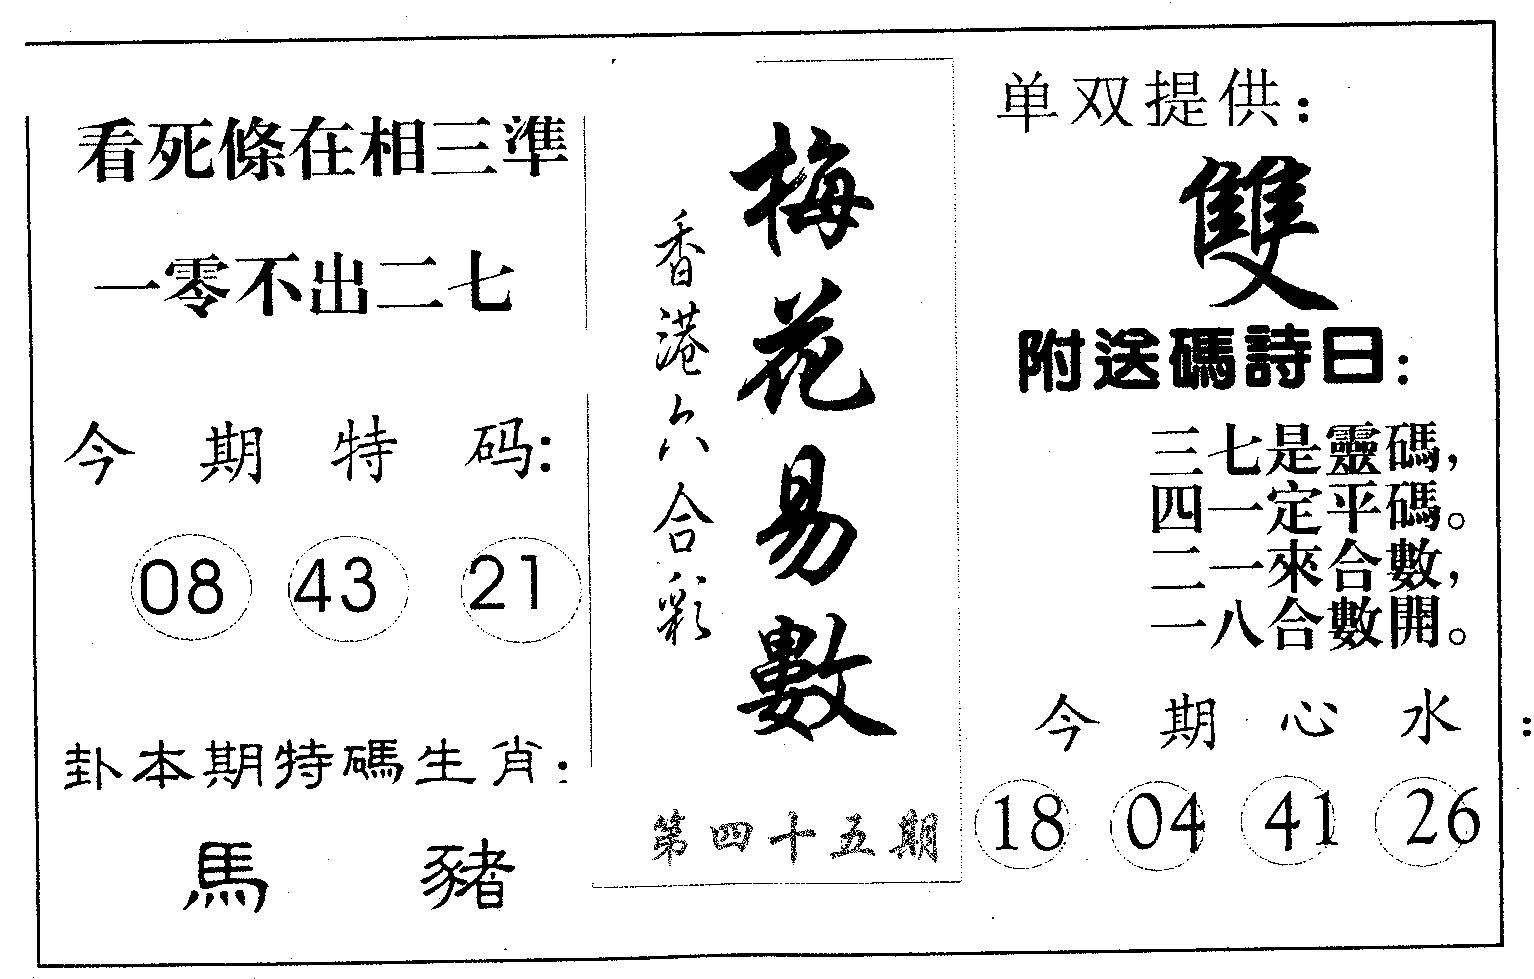 看死條在相三準
一零不出二七
今期特码:
08 43 21
卦本期特碼生肖:
馬 豬
梅花易數
香港六合彩
第四十五期
单双提供:
雙
附送碼詩曰:
三七是靈碼,
四一定平碼。
二一來合數,
一八合數開。
今期心水:
18 04 41 26